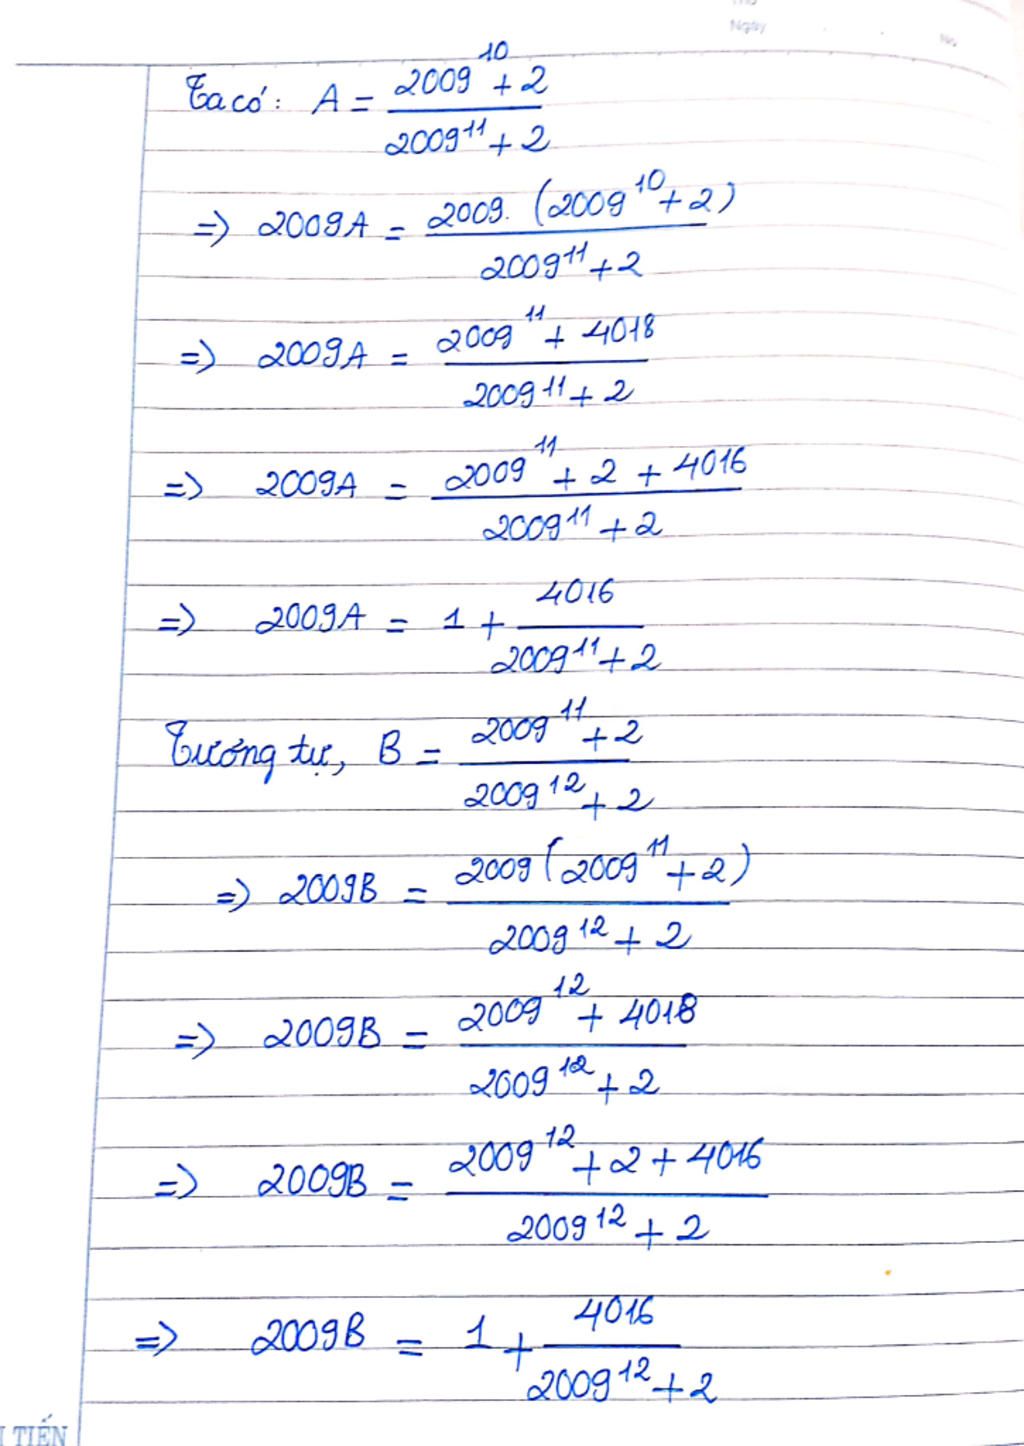 Ngày
No
Ta có: A = (2009^10 + 2) / (2009^11 + 2)
=> 2009A = 2009. (2009^10 + 2) / (2009^11 + 2)
=> 2009A = (2009^11 + 4018) / (2009^11 + 2)
=> 2009A = (2009^11 + 2 + 4016) / (2009^11 + 2)
=> 2009A = 1 + 4016 / (2009^11 + 2)
Tương tự, B = (2009^11 + 2) / (2009^12 + 2)
=> 2009B = 2009 (2009^11 + 2) / (2009^12 + 2)
=> 2009B = (2009^12 + 4018) / (2009^12 + 2)
=> 2009B = (2009^12 + 2 + 4016) / (2009^12 + 2)
=> 2009B = 1 + 4016 / (2009^12 + 2)
TIẾN